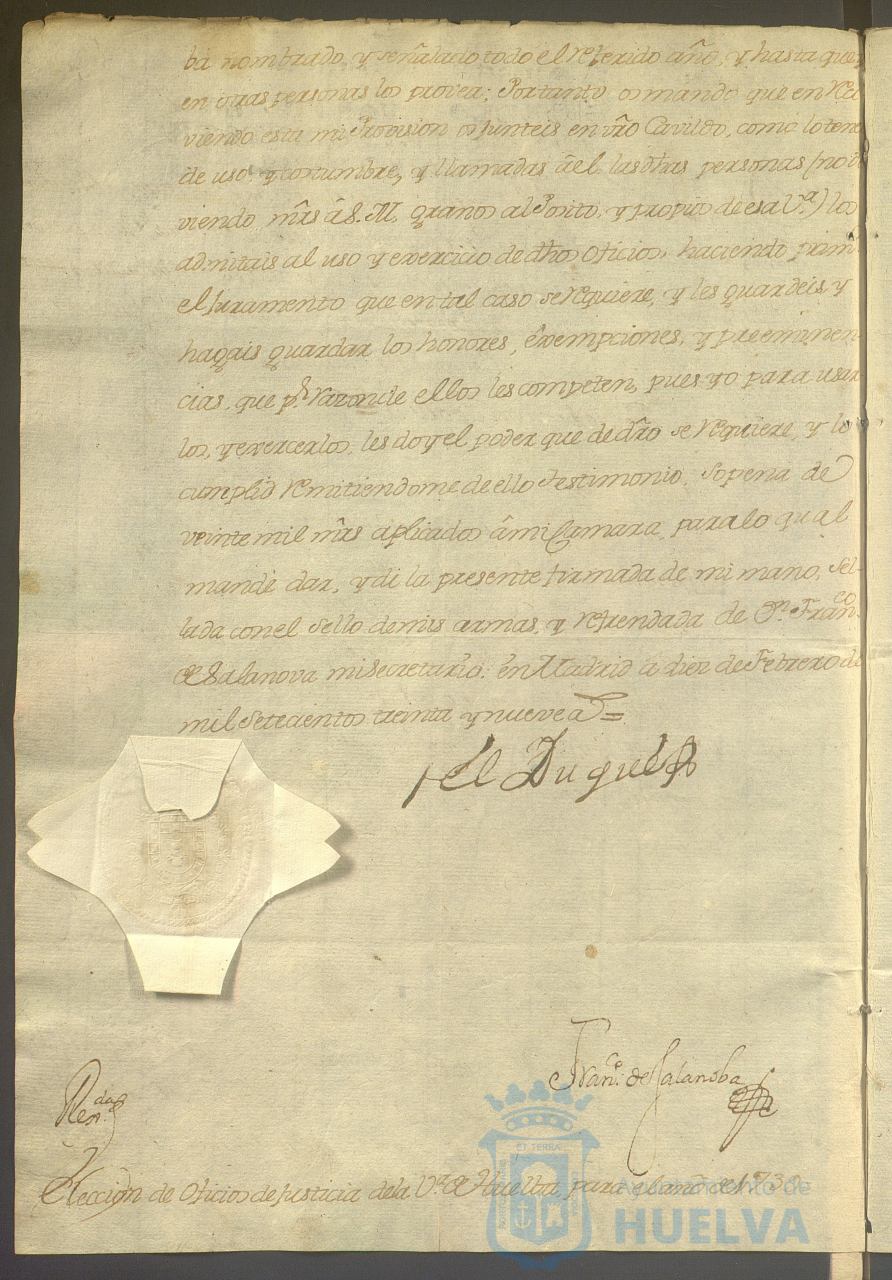 ba nombrado, y señalado todo el referido año, y hasta que
en otras personas los provea; Portanto os mando que en Rea
viendo esta mi Provision os junteis en vro Cavildo, como lo tene
de uso, y costumbre, y llamadas â el, las dhas personas (no de
viendo mrs â S. M. granos al Posito, y propios de esa V.ª) los
admitais al uso y exercicio de dhos Oficios, haciendo prim
el Juramento que en tal caso se requiere, y les guardeis, y
hagais guardar los honores, êxempciones, y preeminen
cias, que pr. razon de ellos les competen, pues yo para usar
los, y exercerlos, les doy el poder que de dro se requiere, y lo
cumplid remitiendome de ello testimonio, So pena de
veinte mil mrs aplicados â mi Camara, para lo qual
mande dar, y di la presente firmada de mi mano, Sel-
lada con el sello de mis armas, y refrendada de Dn. Franco.
de Salanova mi Secretario: en Madrid a diez de Febrero de
mil Setecientos treinta y nueve as=
El Duque
Franco. de Salanoba
Renda.
Eleccion de Oficios de Justicia de la V.ª de Huelva, para el año de 1739.
ET TERRÆ
Ayuntamiento de
HUELVA